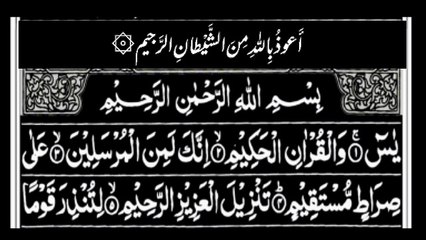 اَعُوذُ بِاللّٰهِ مِنَ الشَّيْطَانِ الرَّجِيْمِ ۝۵
بِسْمِ اللّٰهِ الرَّحْمٰنِ الرَّحِيْمِ
يٰسٓ ۝۱ وَالْقُرْاٰنِ الْحَكِيْمِ ۝۲ اِنَّكَ لَمِنَ الْمُرْسَلِيْنَ ۝۳ عَلٰى
صِرَاطٍ مُّسْتَقِيْمٍ ۝۴ تَنْزِيْلَ الْعَزِيْزِ الرَّحِيْمِ ۝۵ لِتُنْذِرَ قَوْمًا